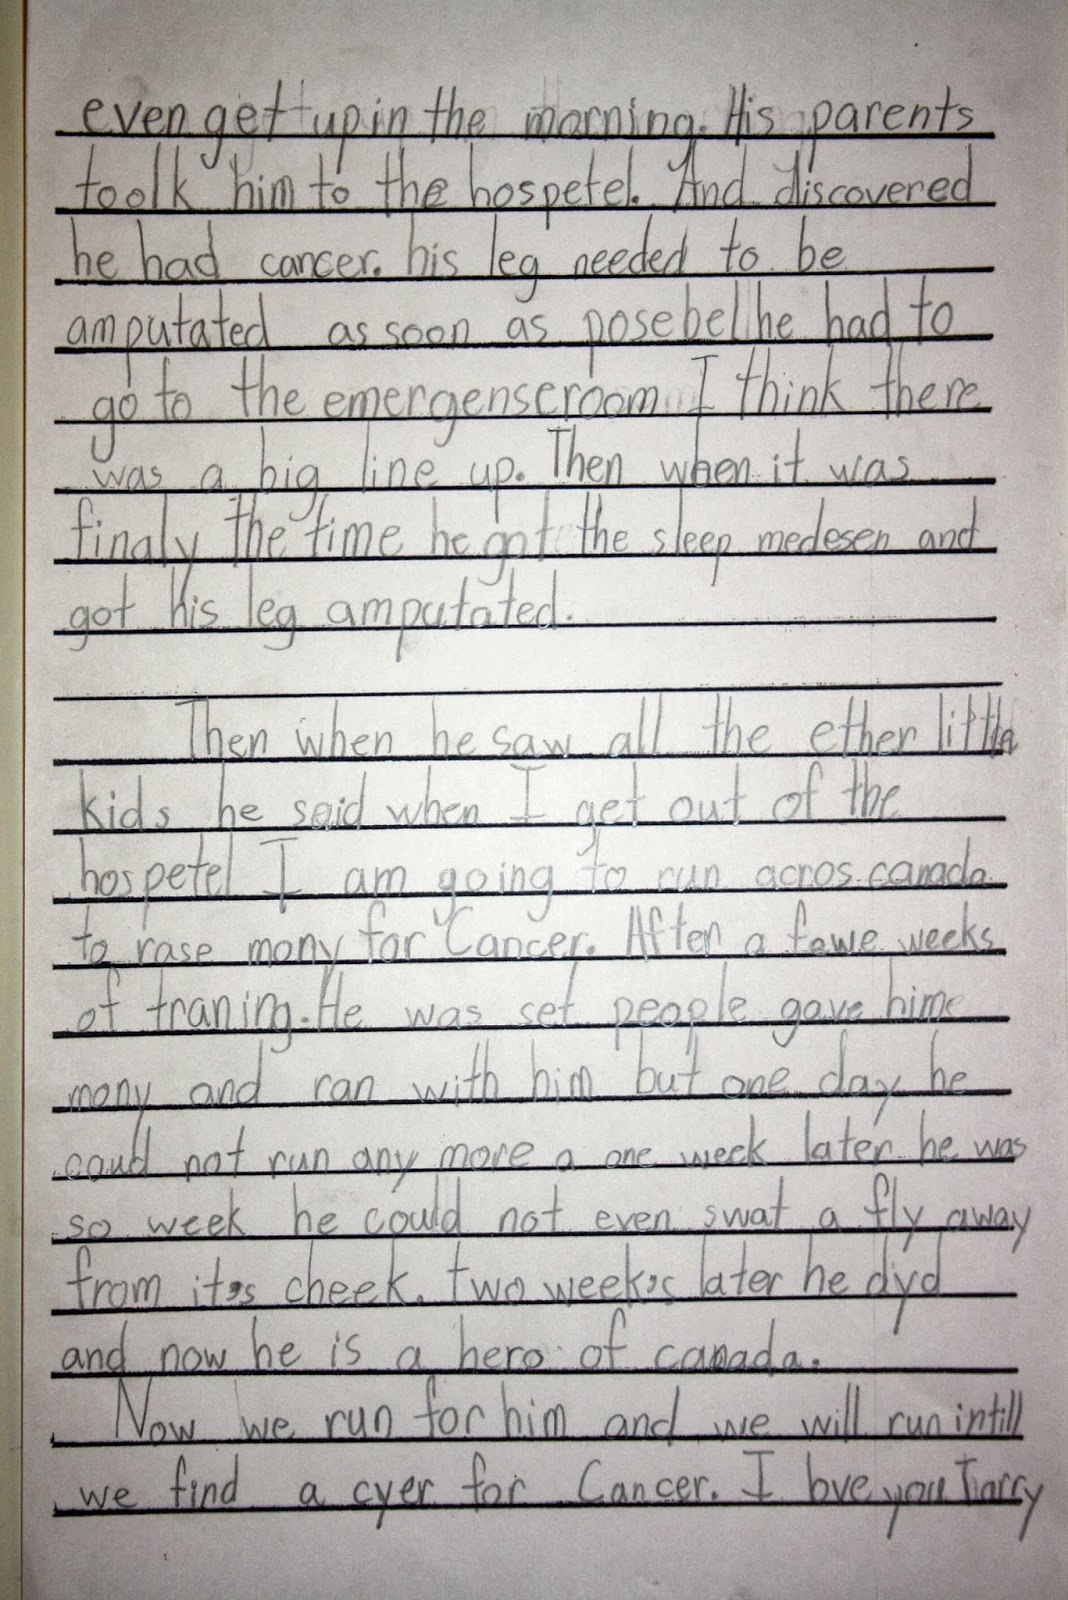 even get up in the morning. His parents
toolk him to the hospetel. And discovered
he had cancer. his leg needed to be
amputated as soon as posebel he had to
go to the emergense room I think there
was a big line up. Then when it was
finaly the time he got the sleep medesen and
got his leg amputated.
Then when he saw all the ether little
kids he said when I get out of the
hospetel I am going to run acros canada
to rase mony for Cancer. After a fewe weeks
of traning. He was set people gave hime
mony and ran with him but one day he
coud not run any more a one week later he was
so week he could not even swat a fly away
from it's cheek. two week's later he dyd
and now he is a hero of canada.
Now we run for him and we will run intill
we find a cyer for Cancer. I love you Tarry